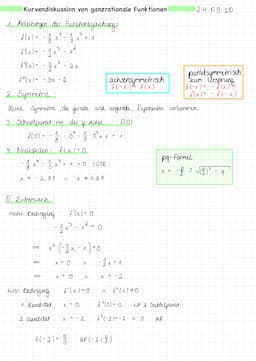 Kurvendiskussion von ganzrationale Funktionen 24.03.20
1. Ableitungen der Funktionsgleichung:
f(x) = - 1/8 x⁴ - 1/3 x³ + 1
f'(x) = - 1/2 x³ - x²
f''(x) = - 3/2 x² - 2x
f'''(x) = - 3x - 2
achsensymmetrisch
f(-x) = f(x)
punktsymmetrisch
zum Ursprung
f(-x) = -f(x)
f(x) = -f(-x)
2. Symmetrie
Keine Symmetrie, da gerade und ungerade Exponenten vorkommen.
3. Schnittpunkt mit der y-Achse: f(0)
f(0) = - 1/8 · 0⁴ - 1/3 · 0³ + 1 = 1
4. Nullstellen: f(x) = 0
- 1/8 x⁴ - 1/3 x³ + 1 = 0 | GTR
x ≈ - 2,37 v x ≈ 1,27
pq-Formel
x = - p/2 ± √(p/2)² - q
5. Extremwerte
notw. Bedingung f'(x) = 0
- 1/2 x³ - x² = 0
⇔ x² (- 1/2 x - 1) = 0
⇔ x = 0 v - 1/2 x = 1
⇔ x = 0 v x = -2
hinr. Bedingung f'(x) = 0 ∧ f''(x) ≠ 0
1. Kandidat x = 0 f''(0) = 0
2. Kandidat x = -2 f''(-2) = -2 < 0 HP
f(-2) = 5/3 HP (-2 | 5/3)